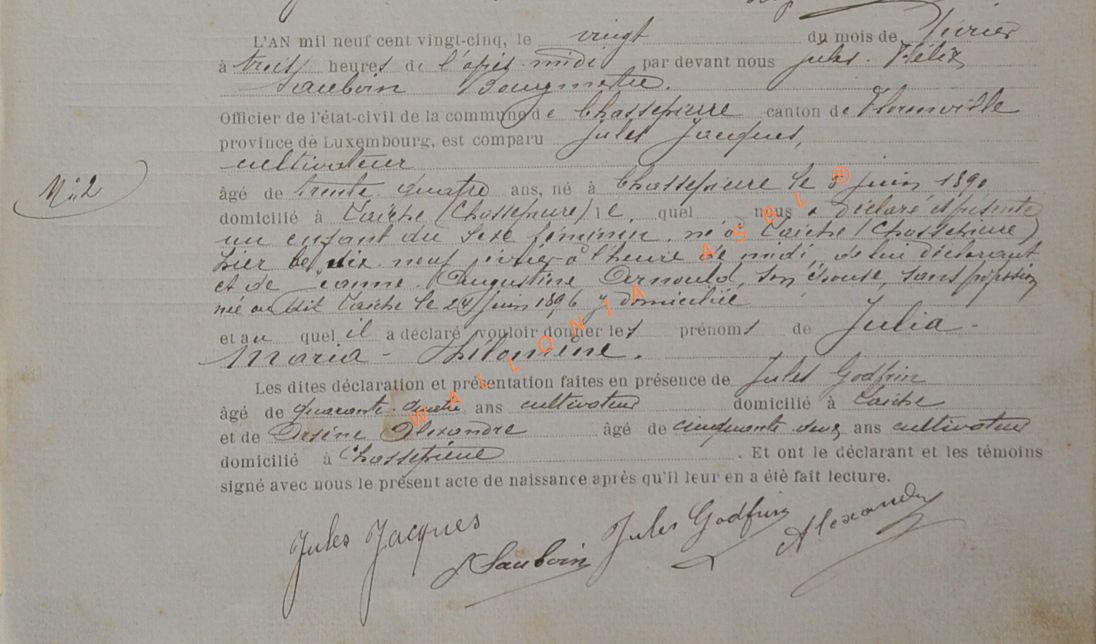 L'AN mil neuf cent vingt-cinq, le vingt du mois de février
à trois heures de l'après-midi par devant nous Jules-Félix
Sauboin Bourgmestre.
Officier de l'état-civil de la commune de Chassepierre canton de Florenville
province de Luxembourg, est comparu Jules Jacques,
cultivateur
N° 2
âgé de trente quatre ans, né à Chassepierre le 8 juin 1890
domicilié à Laiche (Chassepierre) le quel nous a déclaré et présenté
un enfant du sexe féminin, né à Laiche (Chassepierre)
hier le dix neuf février à l'heure de midi, de lui déclarant
et de Jeanne Augustine Arnould, son épouse, sans profession
née au dit Laiche le 24 juin 1896 y domiciliée
et au quel il a déclaré vouloir donner les prénoms de Julia-
Maria-Philomène.
Les dites déclaration et présentation faites en présence de Jules Godfrin
âgé de quarante-quatre ans cultivateur domicilié à Laiche
et de Arsène Alexandre âgé de cinquante deux ans cultivateur
domicilié à Chassepierre. Et ont le déclarant et les témoins
signé avec nous le présent acte de naissance après qu'il leur en a été fait lecture.
Jules Jacques Sauboin Jules Godfrin Alexandre
WALLONIA ASBL ©